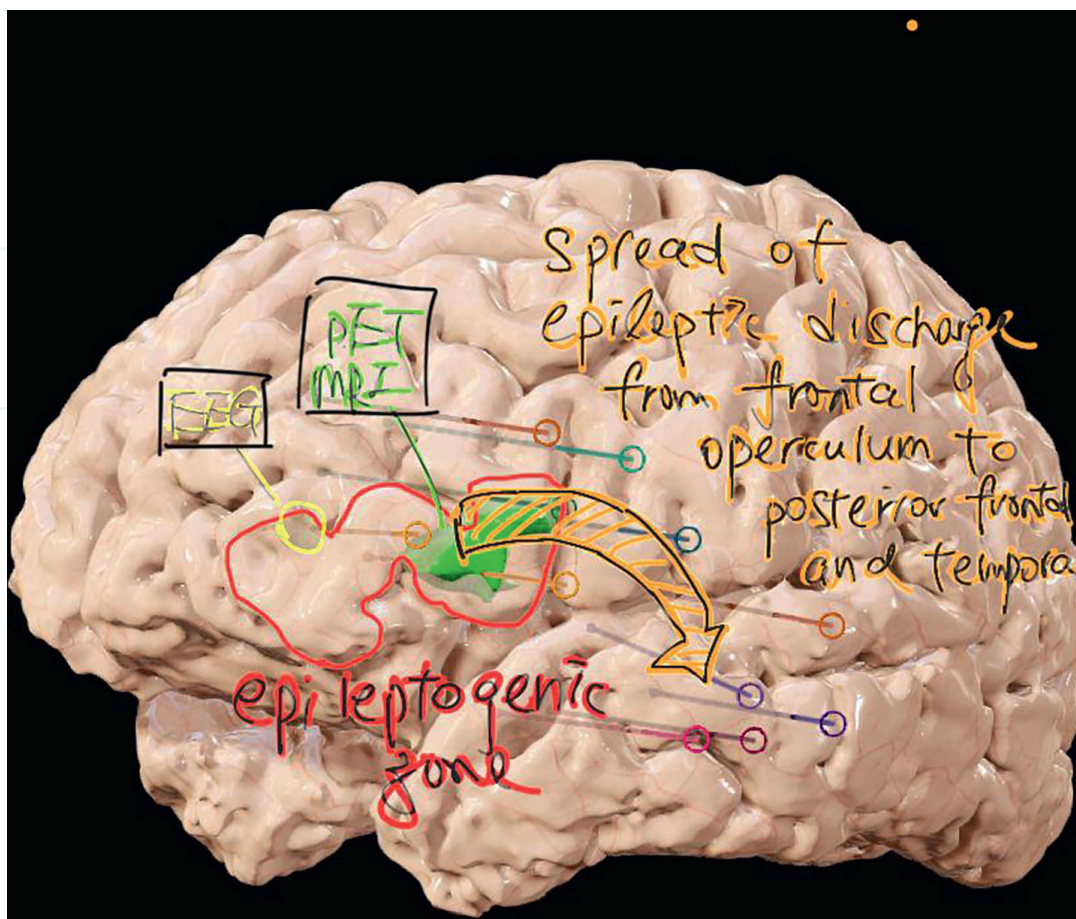 EEG
PET
MRI
spread of
epileptic discharge
from frontal
operculum to
posterior frontal
and tempora
epileptogenic
zone